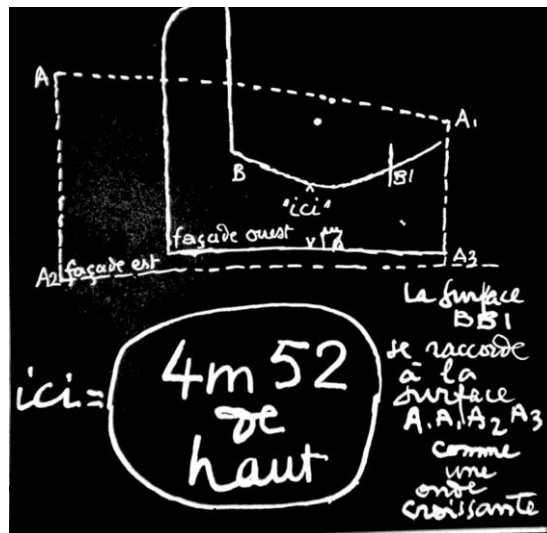 A
A1
B
B1
"ici"
façade ouest
A2 façade est
A3
La surface
BB1
se raccorde
à la
surface
A.A1A2A3
comme
une
onde
croissante
ici=
4m 52
de
haut